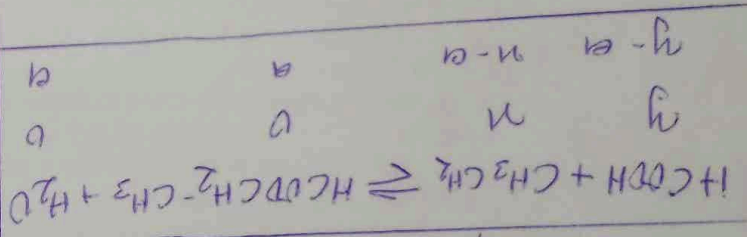 HCOOH + CH₃CH₂ ⇌ HCOOCH₂-CH₃ + H₂O
y n 0 0
y-a n-a a a